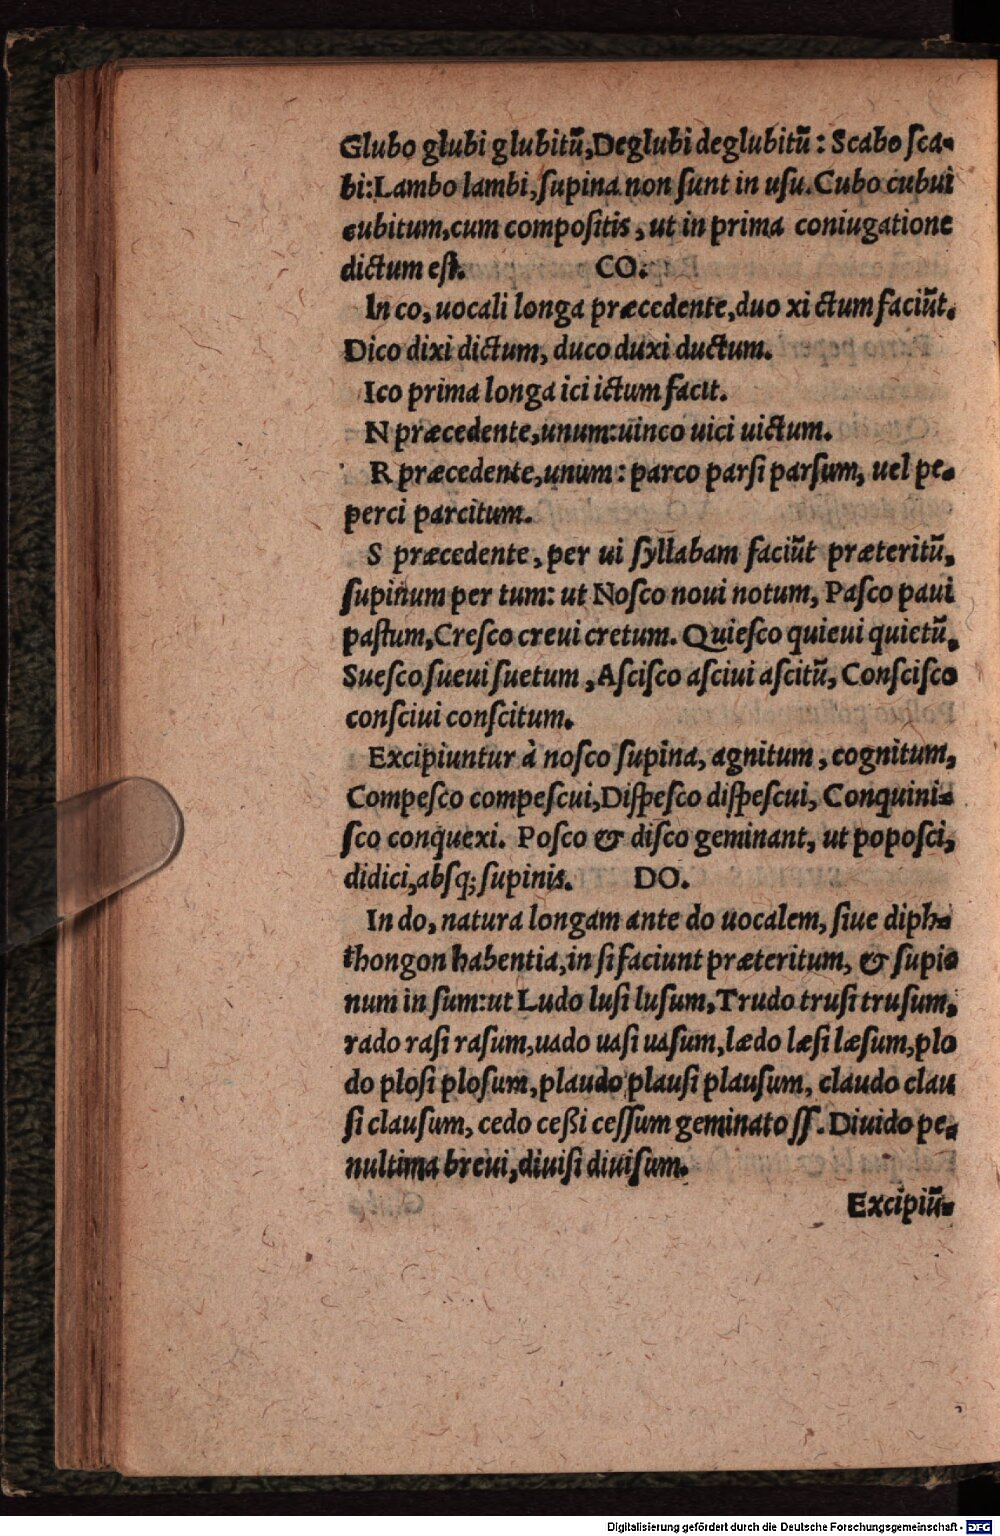 Glubo glubi glubitū,Deglubi deglubitū: Scabo ſca-
bi:Lambo lambi,ſupina non ſunt in uſu.Cubo cubui
cubitum,cum compoſitis, ut in prima coniugatione
dictum eſt. CO.
In co, uocali longa præcedente,duo xi ctum faciūt.
Dico dixi dictum, duco duxi ductum.
Ico prima longa ici ictum facit.
N præcedente,unum:uinco uici uictum.
R præcedente,unum: parco parſi parſum, uel pe-
perci parcitum.
S præcedente, per ui ſyllabam faciūt præteritū,
ſupinum per tum: ut Noſco noui notum, Paſco paui
paſtum,Creſco creui cretum. Quieſco quieui quietū,
Sueſco ſueui ſuetum, Aſciſco aſciui aſcitū, Conſciſco
conſciui conſcitum.
Excipiuntur à noſco ſupina, agnitum, cognitum,
Compeſco compeſcui,Diſpeſco diſpeſcui, Conquini-
ſco conquexi. Poſco & diſco geminant, ut popoſci,
didici,abſq; ſupinis. DO.
In do, natura longam ante do uocalem, ſiue diph-
thongon habentia,in ſi faciunt præteritum, & ſupi-
num in ſum:ut Ludo luſi luſum,Trudo truſi truſum,
rado raſi raſum,uado uaſi uaſum,lædo læſi læſum,plo
do ploſi ploſum,plaudo plauſi plauſum, claudo clau
ſi clauſum, cedo ceßi ceſſum geminato ſſ. Diuido pe-
nultima breui,diuiſi diuiſum.
Excipiū-
Digitalisierung gefördert durch die Deutsche Forschungsgemeinschaft - DFG